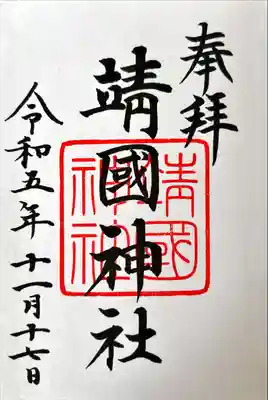 奉拝
靖國神社
靖國神社
令和五年十一月十七日